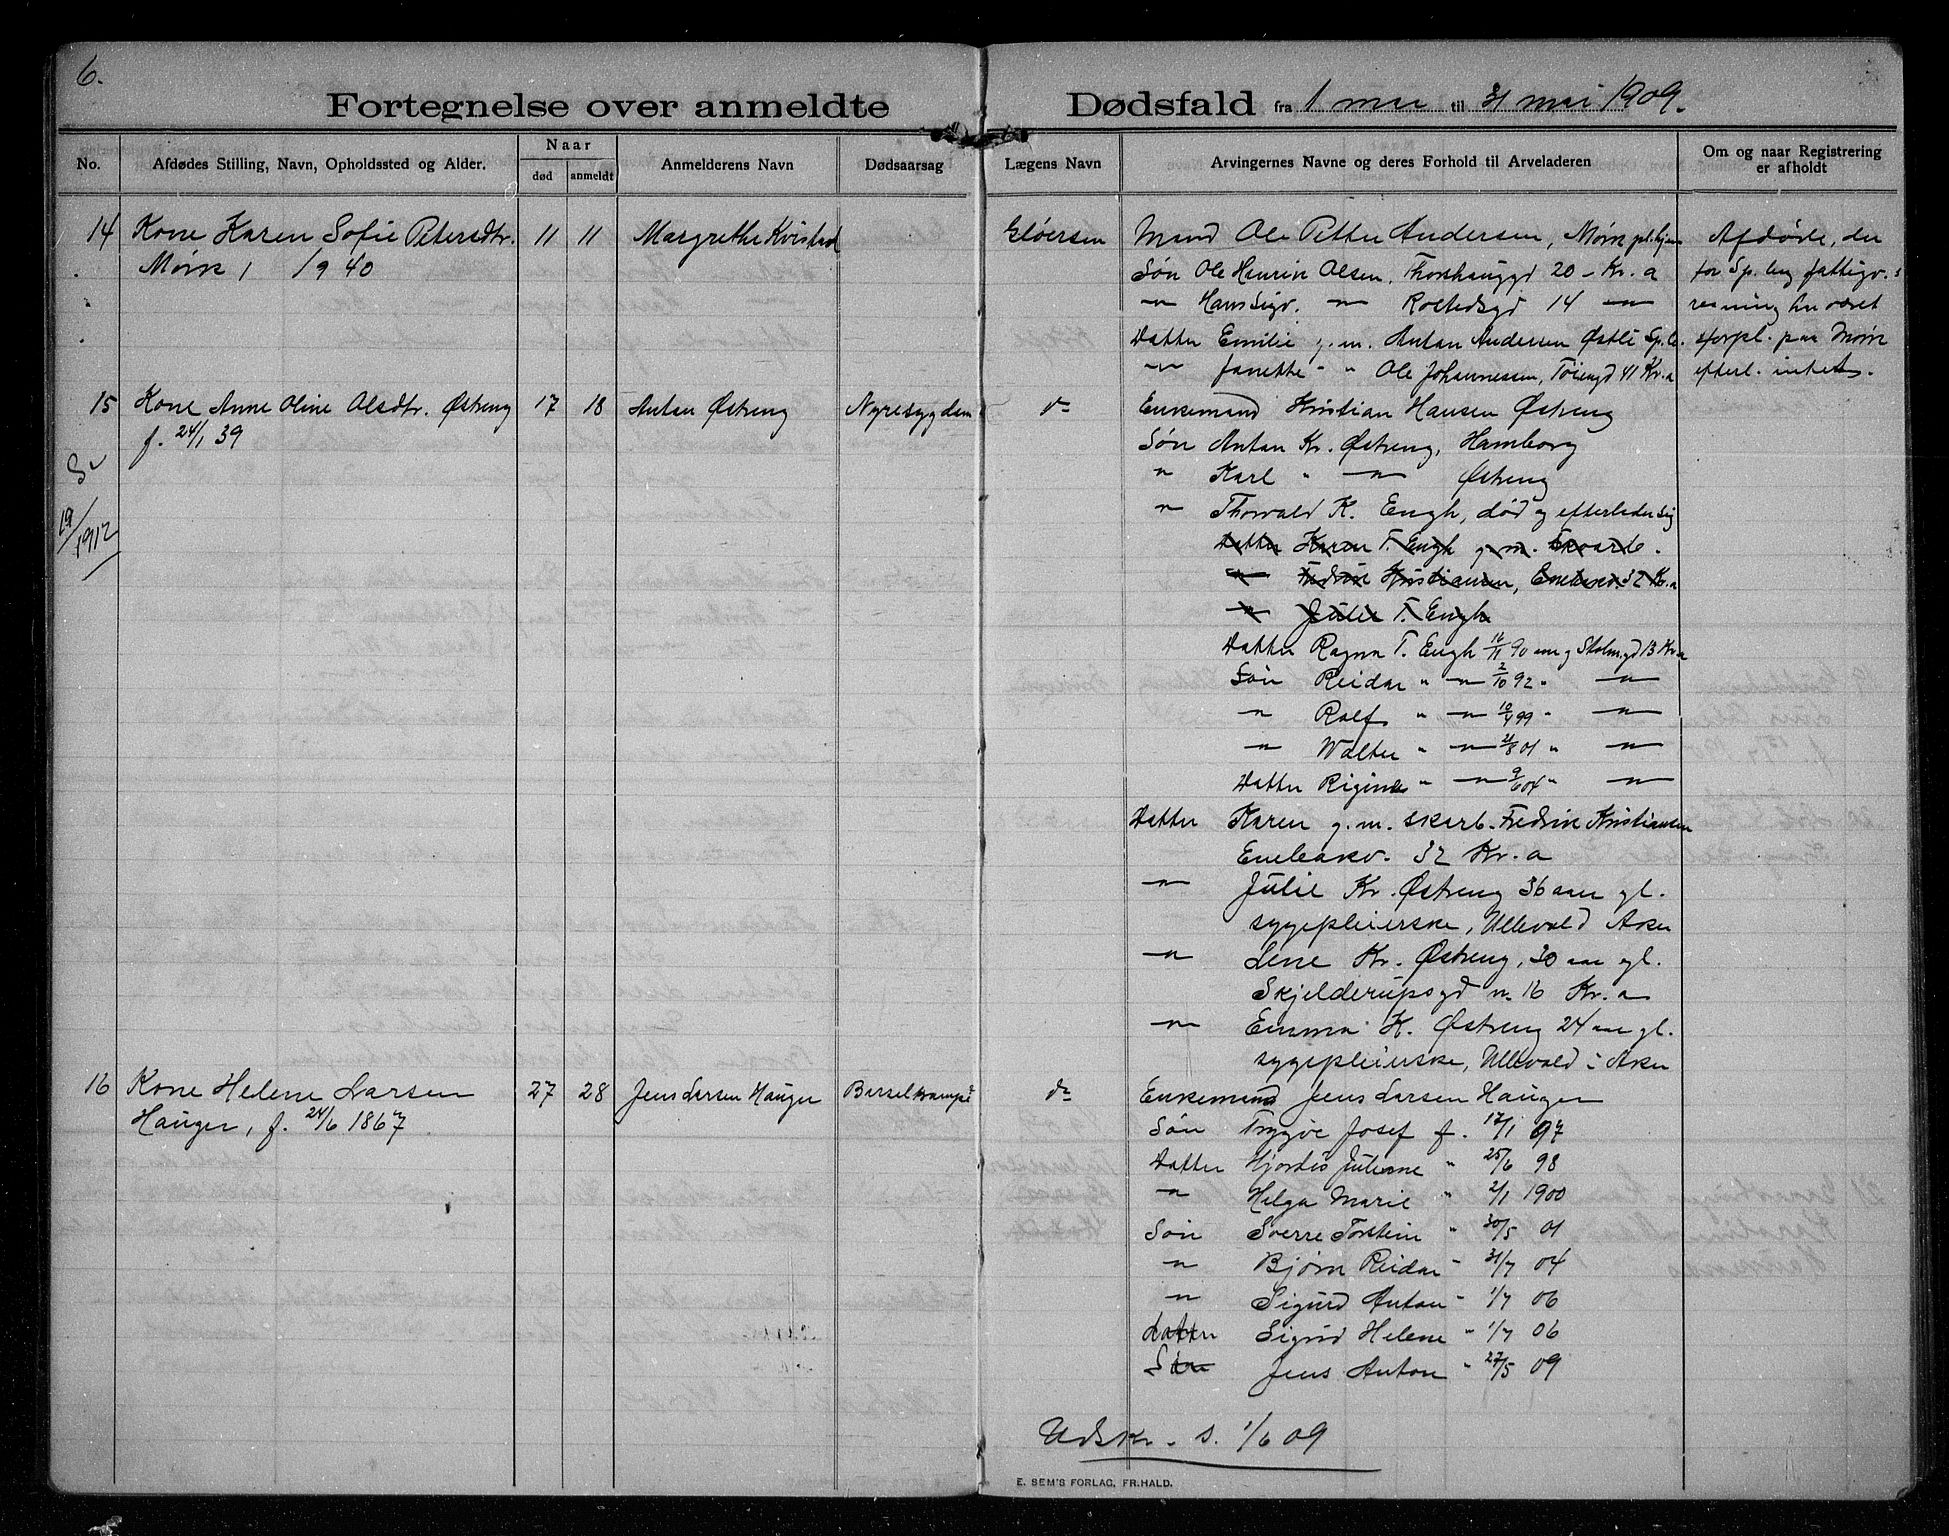 6.
Fortegnelse over anmeldte Dødsfald fra 1 mai til 31 mai 1909.
No. Afdødes Stilling, Navn, Opholdssted og Alder. Naar død anmeldt Anmelderens Navn Dødsaarsag Lægens Navn Arvingernes Navne og deres Forhold til Arveladeren Om og naar Registrering er afholdt
14 Kone Karen Sofie Petersdtr. 11 11 Margrethe Kvistad Gløersen Mand Ole Petter Andersen, Mørk Afdøde, der
Mørk, 1/9 40 Søn Ole Henrik Olsen, Thorshauggd 20 - Kr.a for Sp.berg fattigv.
" Hans Sigv. " Rolfedsgd 14 " har været
Datter Emilie g.m. Anton Andersen Østli Sp.b. forpl. paa Mørk
" Janette " " Ole Johannessen, Tøiengd 41 Kr.a efterl. intet.
15 Kone Anne Oline Olsdtr. Østreng 17 18 Anton Østreng Nyresygdom do Enkemand Kristian Hansen Østreng
f. 24/1 39 Søn Anton Kr. Østreng, Hamborg
" Karl " " Østreng
" Thorvald K. Engh, død og efterlader sig
19/1912
Datter Karen T. Engh g.m. Skoarb.
" Fredrik Kristiansen, Enebakv. 32 Kr.a
" Julie T. Engh
Datter Ragna T. Engh 16/11 90 Skolmgd 13 Kr.a
Søn Reidar " " 2/10 92 " "
" Rolf " " 10/4 99 " "
" Walter " " 21/8 01 " "
Datter Rigmor " " 9/6 04 " "
Datter Karen g.m. skarb. Fredrik Kristiansen
Enebakv. 32 Kr.a
" Julie Kr. Østreng 36 aar gl.
sygepleierske, Ullevold Aker
" Lene Kr. Østreng, 30 aar gl.
Skjelderupsgd n. 16 Kr.a
" Emma K. Østreng 24 aar gl.
sygepleierske, Ullevold i Aker
16 Kone Helene Larsen 27 28 Jens Larsen Hauger Barselkrampe do Enkemand Jens Larsen Hauger
Hauger, f. 24/6 1867 Søn Trygve Josef f. 17/1 97
Datter Hjørdis Juliane " 25/6 98
" Helga Marie " 2/1 1900
Søn Sverre Torstein " 30/5 01
" Bjørn Reidar " 31/7 04
" Sigurd Anton " 1/7 06
Datter Sigrid Helene " 1/7 06
Søn Jens Anton " 27/5 09
Udskr. s. 1/6 09
E. SEM'S FORLAG, FR.HALD.